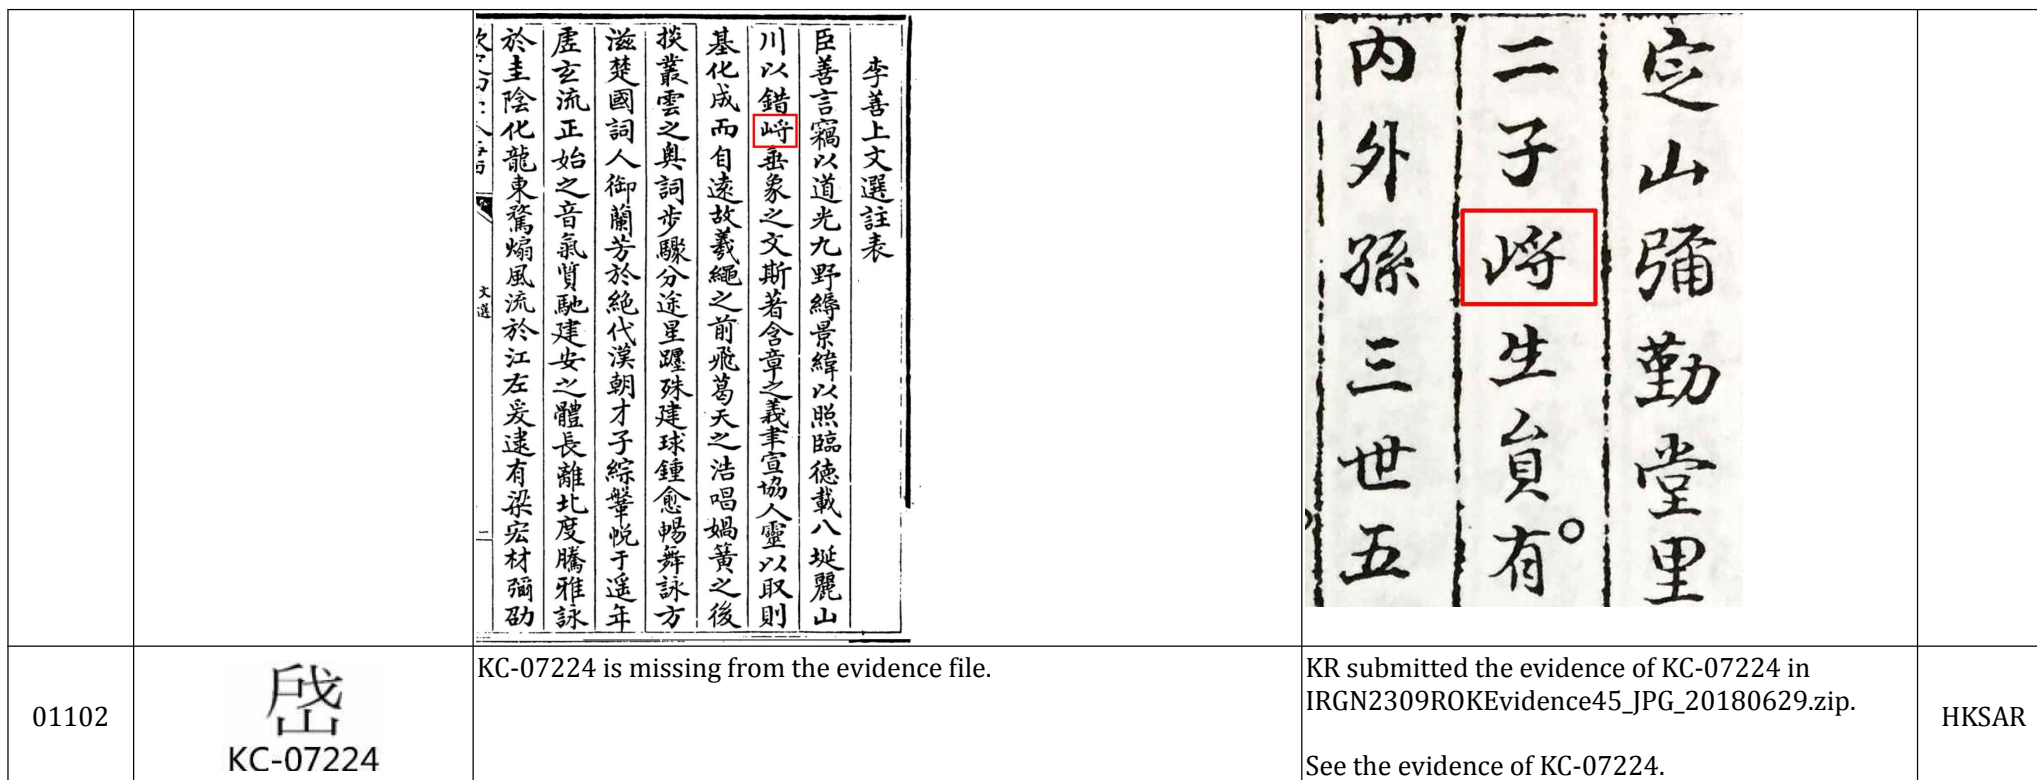 李善上文選註表
臣善言竊以道光九野縟景緯以照臨德載八埏麗山
川以錯垂象之文斯著含章之義聿宣協人靈以取則
基化成而自遠故羲繩之前飛葛天之浩唱媧簧之後
掞叢雲之奥詞步驟分途星躔殊建球鍾愈暢舞詠方
滋楚國詞人御蘭芳於絶代漢朝才子綜鞶帨于遥年
虛玄流正始之音氣質馳建安之體長離北度騰雅詠
於圭陰化龍東騖煽風流於江左爰逮有梁宏材彌劭
文選
二
定山彌勤堂里
二子生員有
內外孫三世五
01102
KC-07224
KC-07224 is missing from the evidence file.
KR submitted the evidence of KC-07224 in
IRGN2309ROKEvidence45_JPG_20180629.zip.
See the evidence of KC-07224.
HKSAR